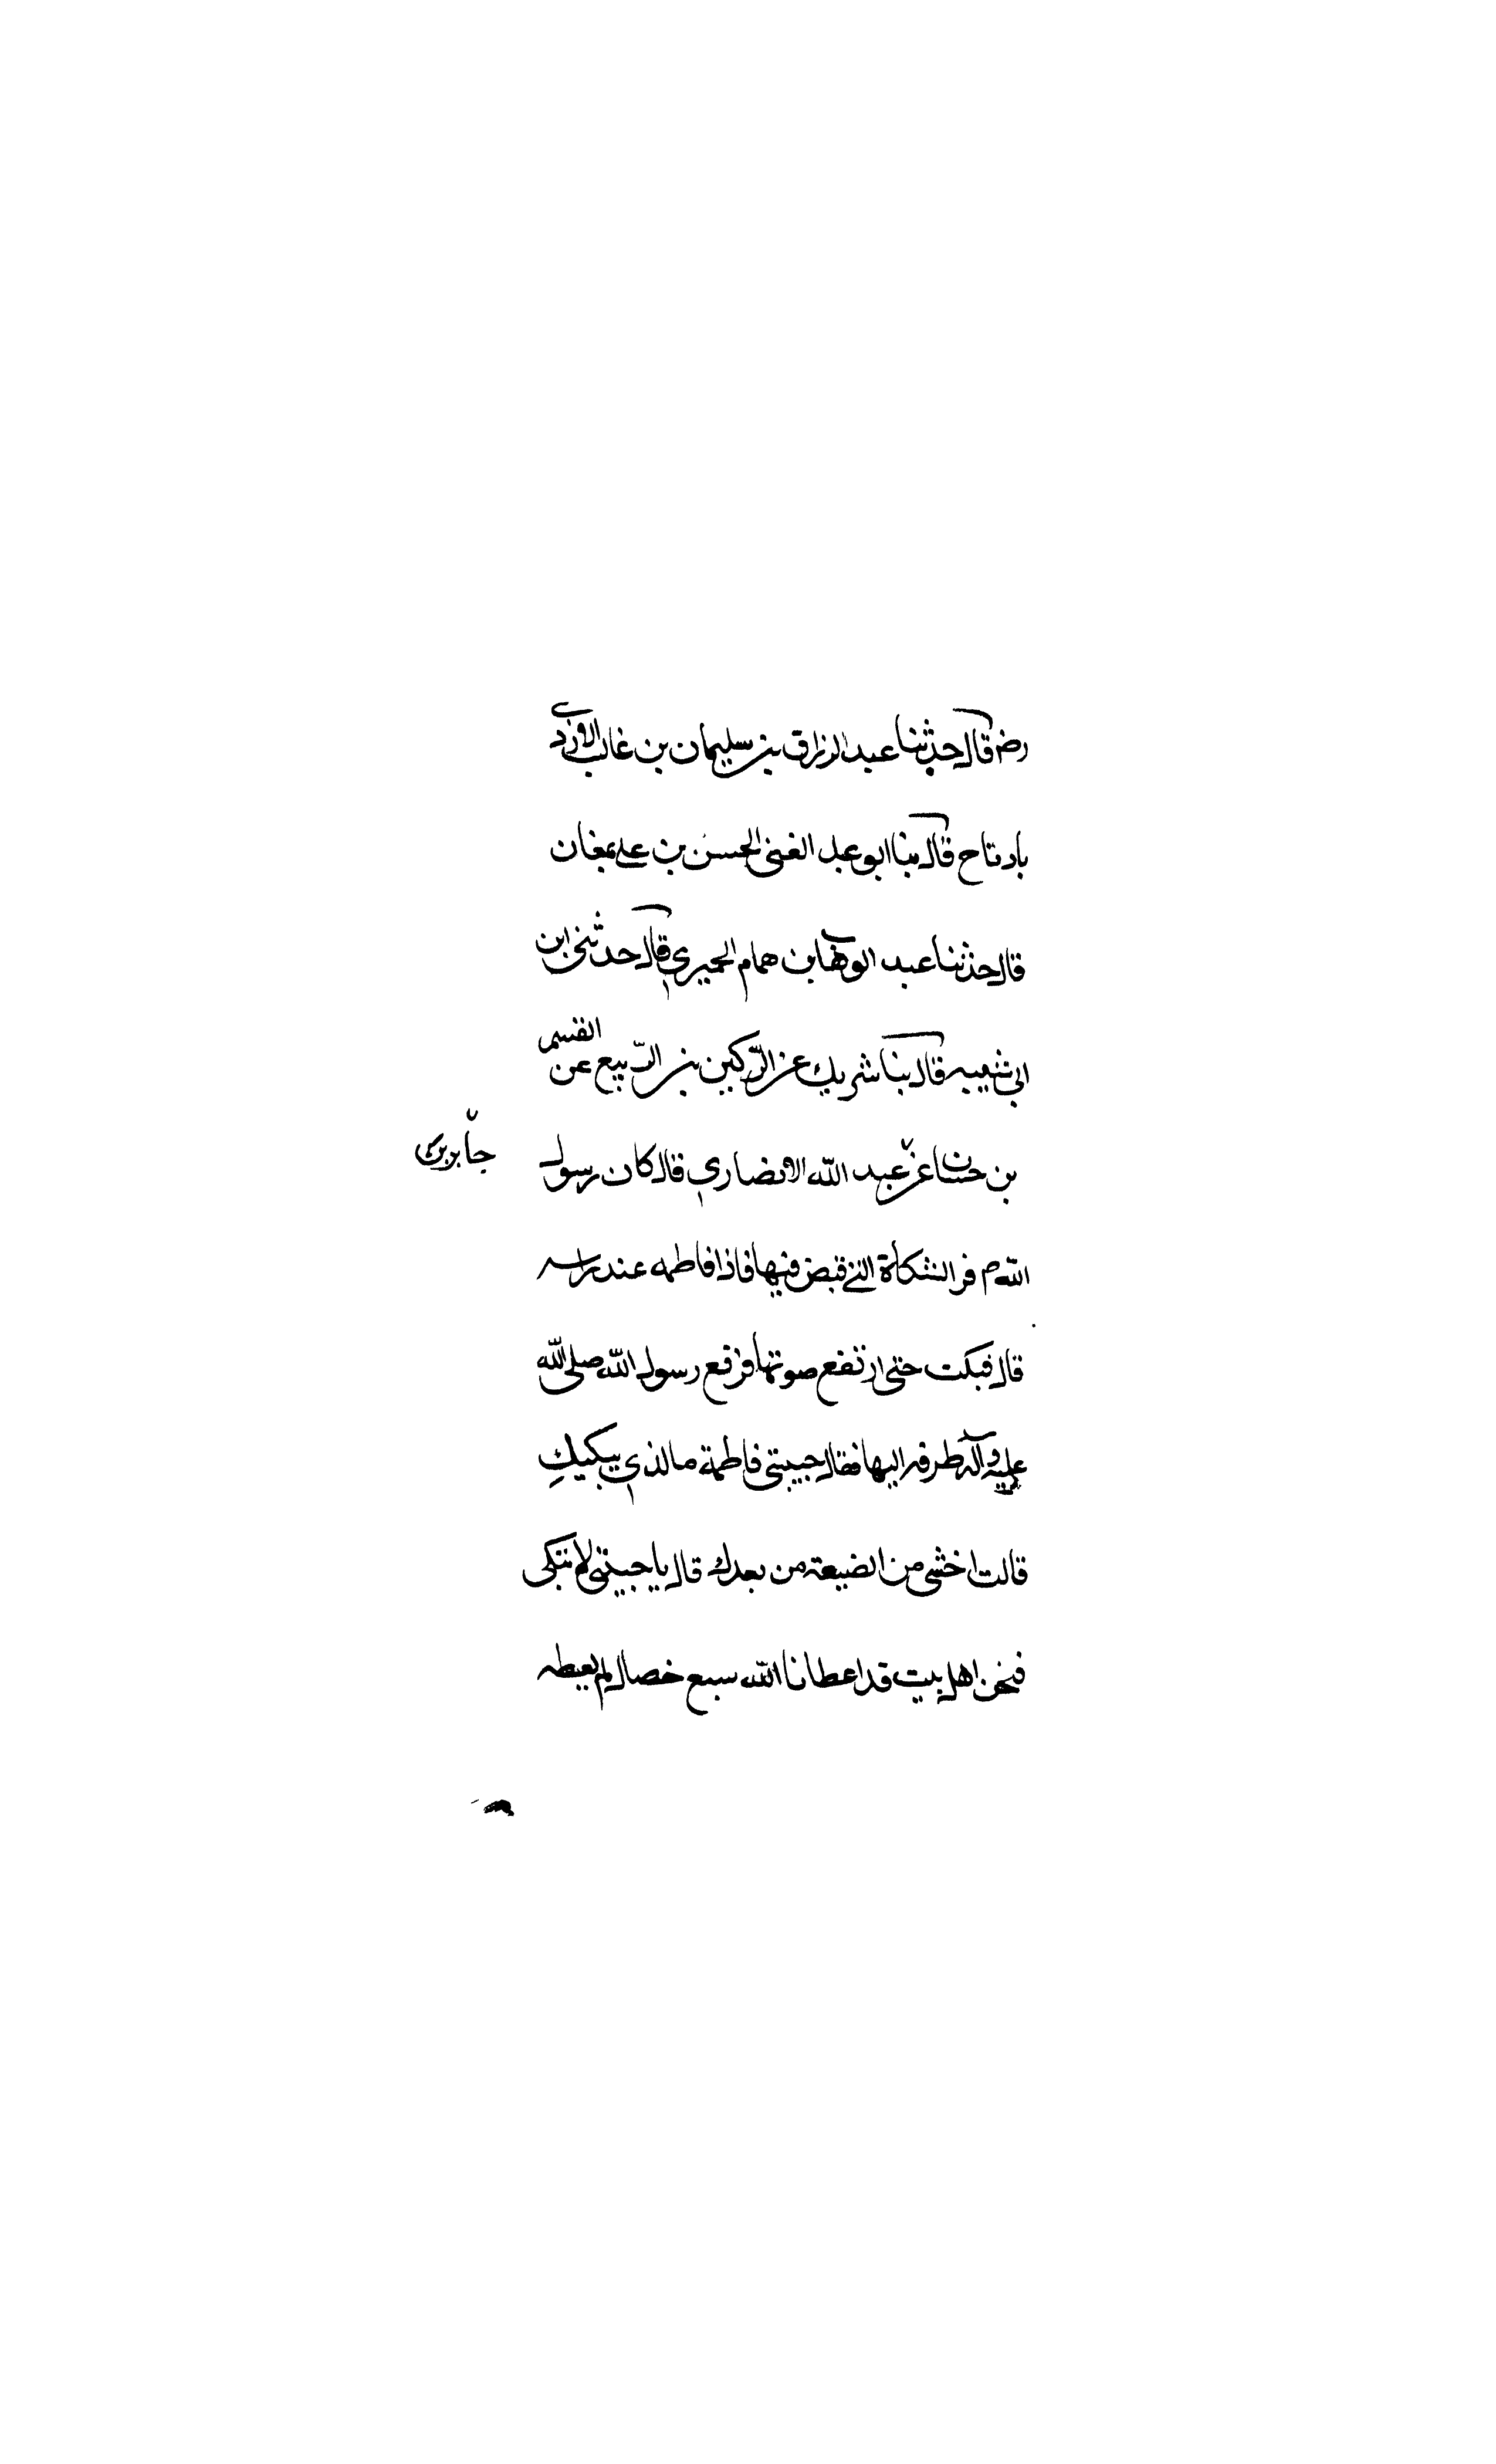 رض قال حدثنا عبد الرزاق بن سليمان بن غالب الازدي
بادتاح قال ثنا ابو عبد الغنى الحسن بن على بمغان
قال حدثنا عبد الوهاب بن همام الحميري قال حدثنى ابن
ابى شيبه قال ثنا شريك عن الركين بن الربيع عن القسم
بن حسان عن عبد الله الانصاري قال كان رسول
جابر بن
الله ص فى الشكاة التى قبض فيها فاذا فاطمه عند راسه
قال فبكت حتى ارتفع صوتها فرفع رسول الله صلى الله
عليه وآله طرفه اليها فقال حبيبتى فاطمة ما الذي يبكيكِ
قالت اخشى من الضيعة من بعدك قال يا حبيبتى لا تبكى
فنحن اهل بيت قد اعطانا الله سبع خصال لم يعطه